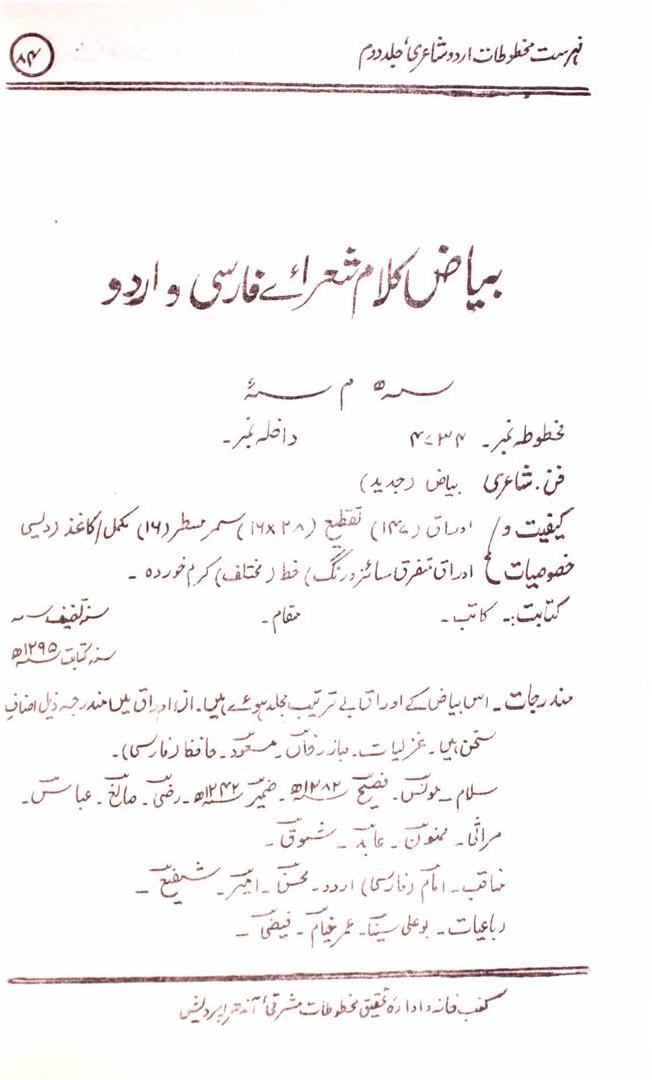 فہرست مخطوطات اردو شاعری، جلد دوم
۸۴
بیاض کلام شعرائے فارسی و اردو
سنہ ھ م سنہ ء
مخطوطہ نمبر۔ ۴۷۳۴ داخلہ نمبر۔
فن۔ شاعری بیاض (جدید)
کیفیت و اوراق (۱۴۷) تقطیع (۲۸×۱۶) سمر سطر (۱۶) مکمل / کاغذ (دیسی
خصوصیات اوراق متفرق سائز و رنگ) خط (مختلف) کرم خوردہ ۔
کتابت:۔ کاتب ۔ مقام ۔ سنہ تصنیف سنہ
سنہ کتابت ۱۲۹۵ھ
مندرجات ۔ اس بیاض کے اوراق بے ترتیب مجلد ہوئے ہیں۔ ان اوراق میں مندرجہ ذیل اصناف
سخن ہیں ۔ غزلیات ۔ مسعود ۔ حافظ (فارسی)۔
سلام ۔ مونس ۔ فصیح ۱۲۸۲ھ ۔ ضمیر ۱۲۴۲ھ ۔ رضی ۔ صالح ۔ عباس ۔
مراثی ۔ ممنون ۔ عابد ۔ شوق ۔
مناقب ۔ امام (فارسی) اردو ۔ محسن ۔ امیر ۔ شفیع ۔
رباعیات ۔ بوعلی سینا ۔ عمر خیام ۔ فیضی ۔
کتب خانہ و ادارۂ تحقیق مخطوطات مشرقی، آندھرا پردیش